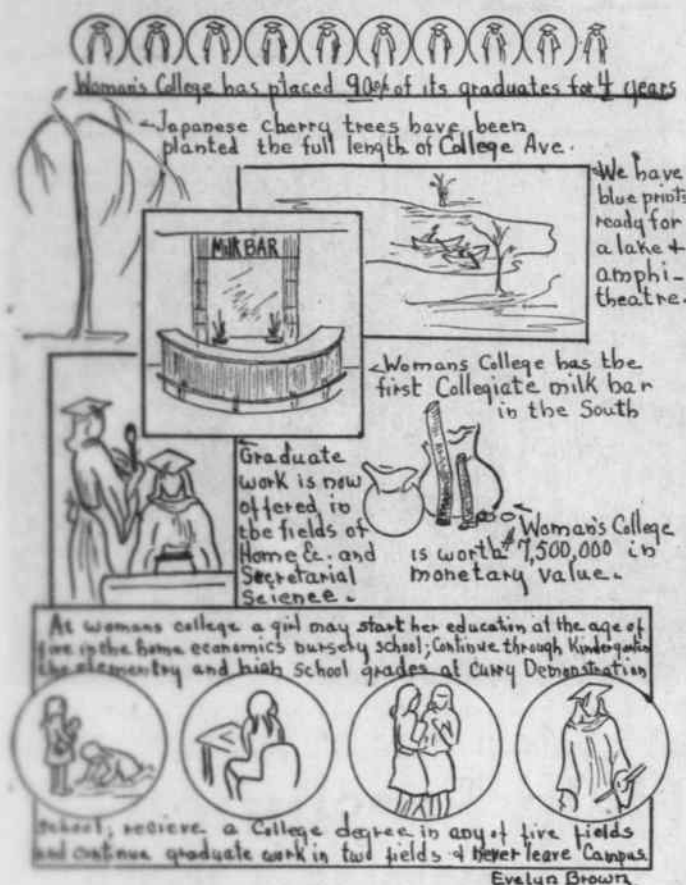 Woman's College has placed 90% of its graduates for 4 years
Japanese cherry trees have been
planted the full length of College Ave.
We have
blue prints
ready for
a lake +
amphi-
theatre.
MILK BAR
Womans College has the
first Collegiate milk bar
in the South
Graduate
work is now
offered in
the fields of
Home Ec. and
Secretarial
Science.
Woman's College
is worth 7,500,000 in
monetary value.
At womans college a girl may start her education at the age of
five in the home economics nursery school; Continue through Kindergarten
the elementry and high school grades at Curry Demonstration
School; recieve a College degree in any of five fields
and continue graduate work in two fields & never leave Campus.
Evelyn Brown